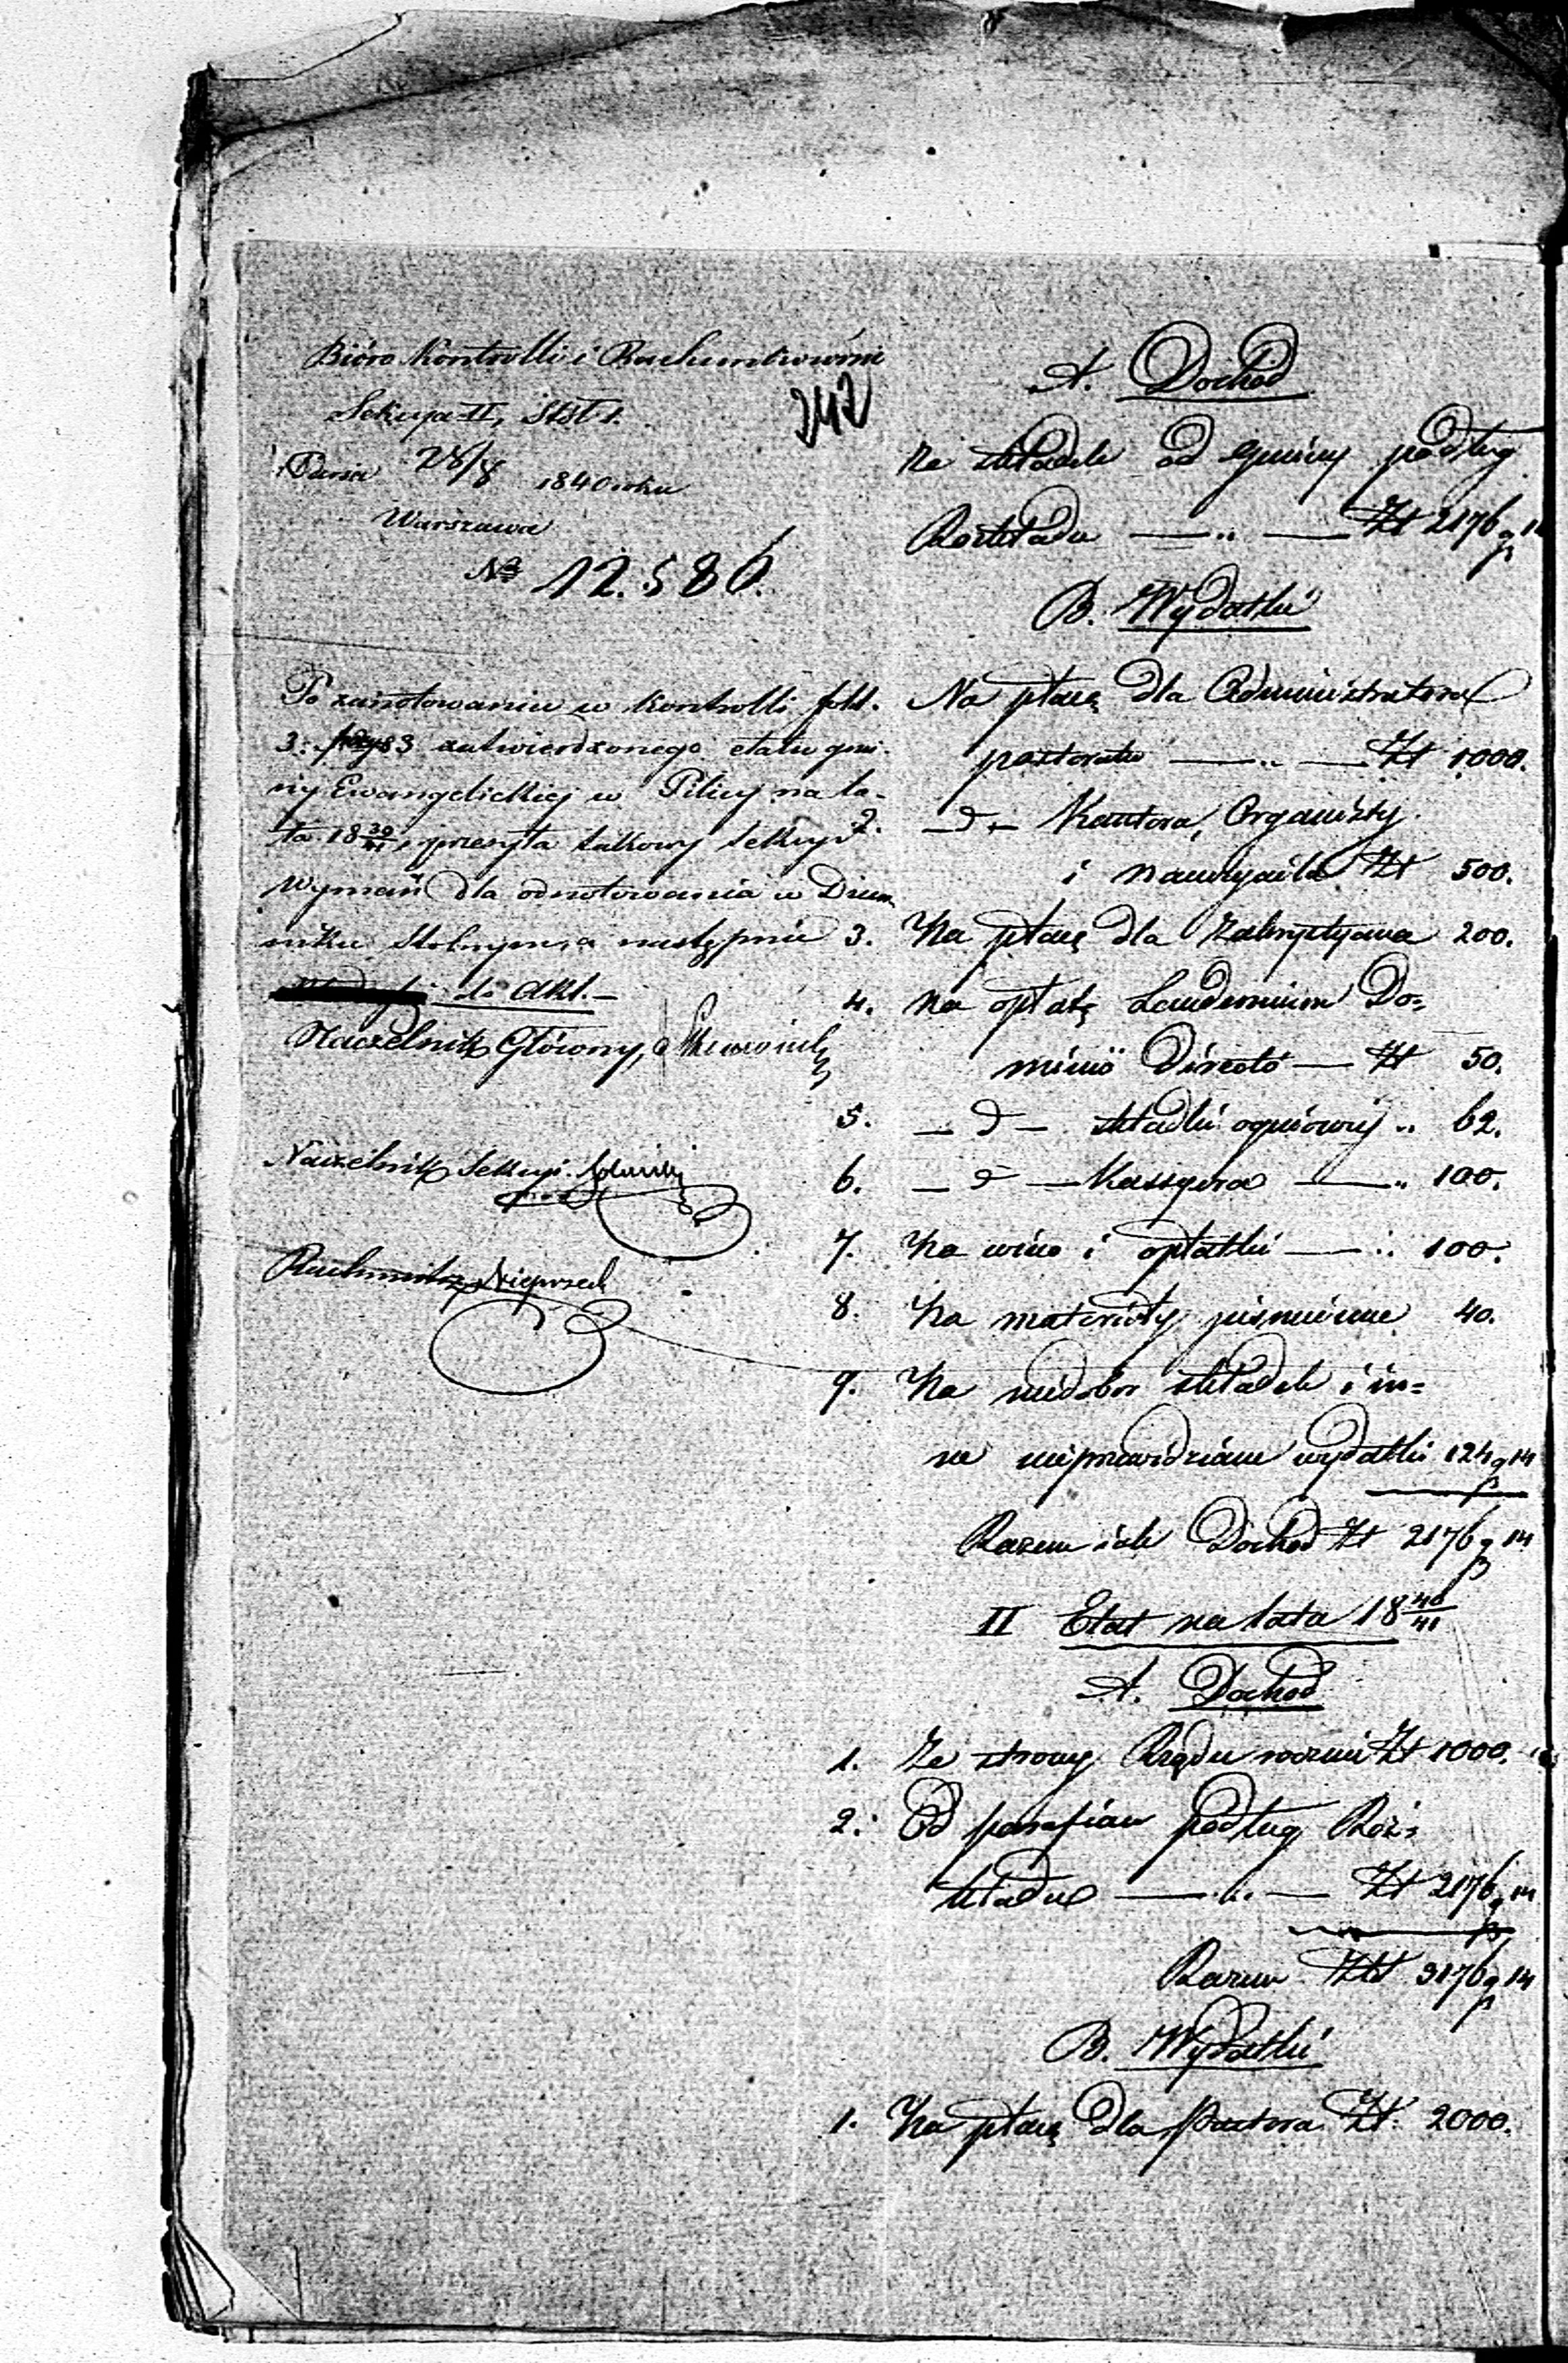 Bióro Kontrolli i Rachunkowośći
Sekcya II, Stół 1.
Dnia 28/8 1840 roku
Warszawa
№ 12.586.
242
Po zanotowaniu w kontrolli fol.
3: 83 zatwierdzonego etatu gmi-
ny Ewangelickiej w Pilicy na la-
ta 18 39/41, przesyła całkowy Sekcyi
Wyznań dla odnotowania w Dzien-
niku Stolnym, a następnie
do Akt.
Naczelnik Główny,
Naczelnik Sekcyi
Rachmistrz Nieprzech
A. Dochód
Ze składek od gminy podług
Roskładu — „ — Zł 2176 gr 14
B. Wydatki
Na płacę dla Administratora
pastoratu — „ — Zł 1000.
2. — d — Kantora, Organisty
i nauczyciela Zł 500.
3. Na płacę dla Zakrystyana 200.
4. na opłatę Laudemium Do=
minio Directo — Zł 50.
5. — d — składki ogniowéy „ 62.
6. — d — Kassyera — „ 100.
7. Na wino i opłatki — „ 100.
8. Na materiały piśmienne 40.
9. Na niedobór składek i in=
ne nieprzewidziane wydatki 124 gr 14
Razem iak Dochód Zł 2176 gr 14
II Etat na lata 18 40/41
A. Dochód
1. Ze strony Rządu rocznie Zł 1000.
2. Od parafian podług Roz=
kładu — „ — Zł 2176 gr 14
Razem Zł 3176 gr 14
B. Wydatki
1. Na płacę dla Pastora Zł 2000.